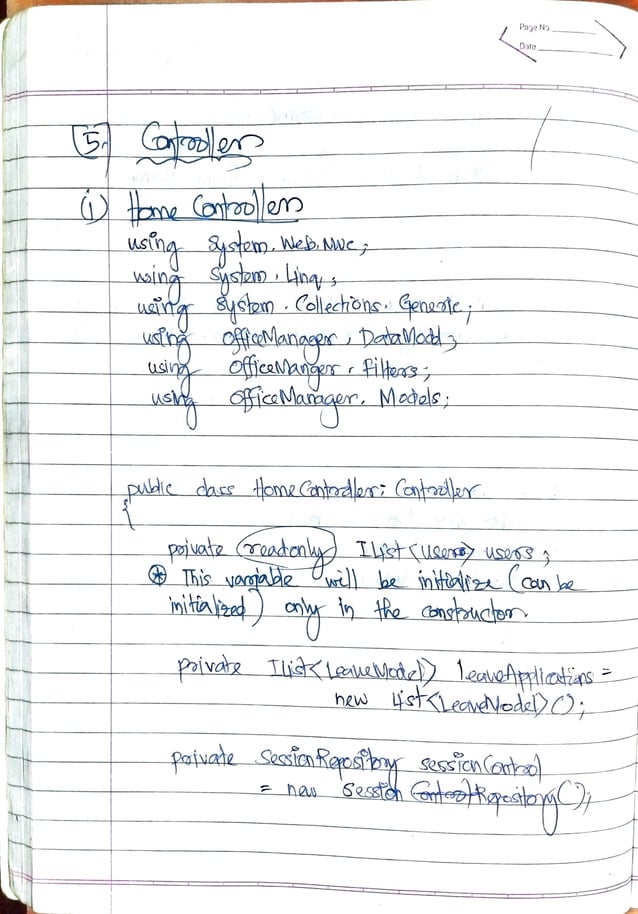 Page No
Date
5. Controllers
(i) Home Controllers
using System.Web.Mvc;
using System.Linq;
using System.Collections.Generic;
using OfficeManager.DataModel;
using OfficeManger.Filters;
using OfficeManager.Models;
public class HomeController: Controller
{
private readonly IList<Users> users;
⊛ This variable will be initialize (can be
initialized) only in the constructor.
private IList<LeaveModel> leaveApplications =
new List<LeaveModel>();
private SessionRepository sessionControl
= new Session Control Repository();